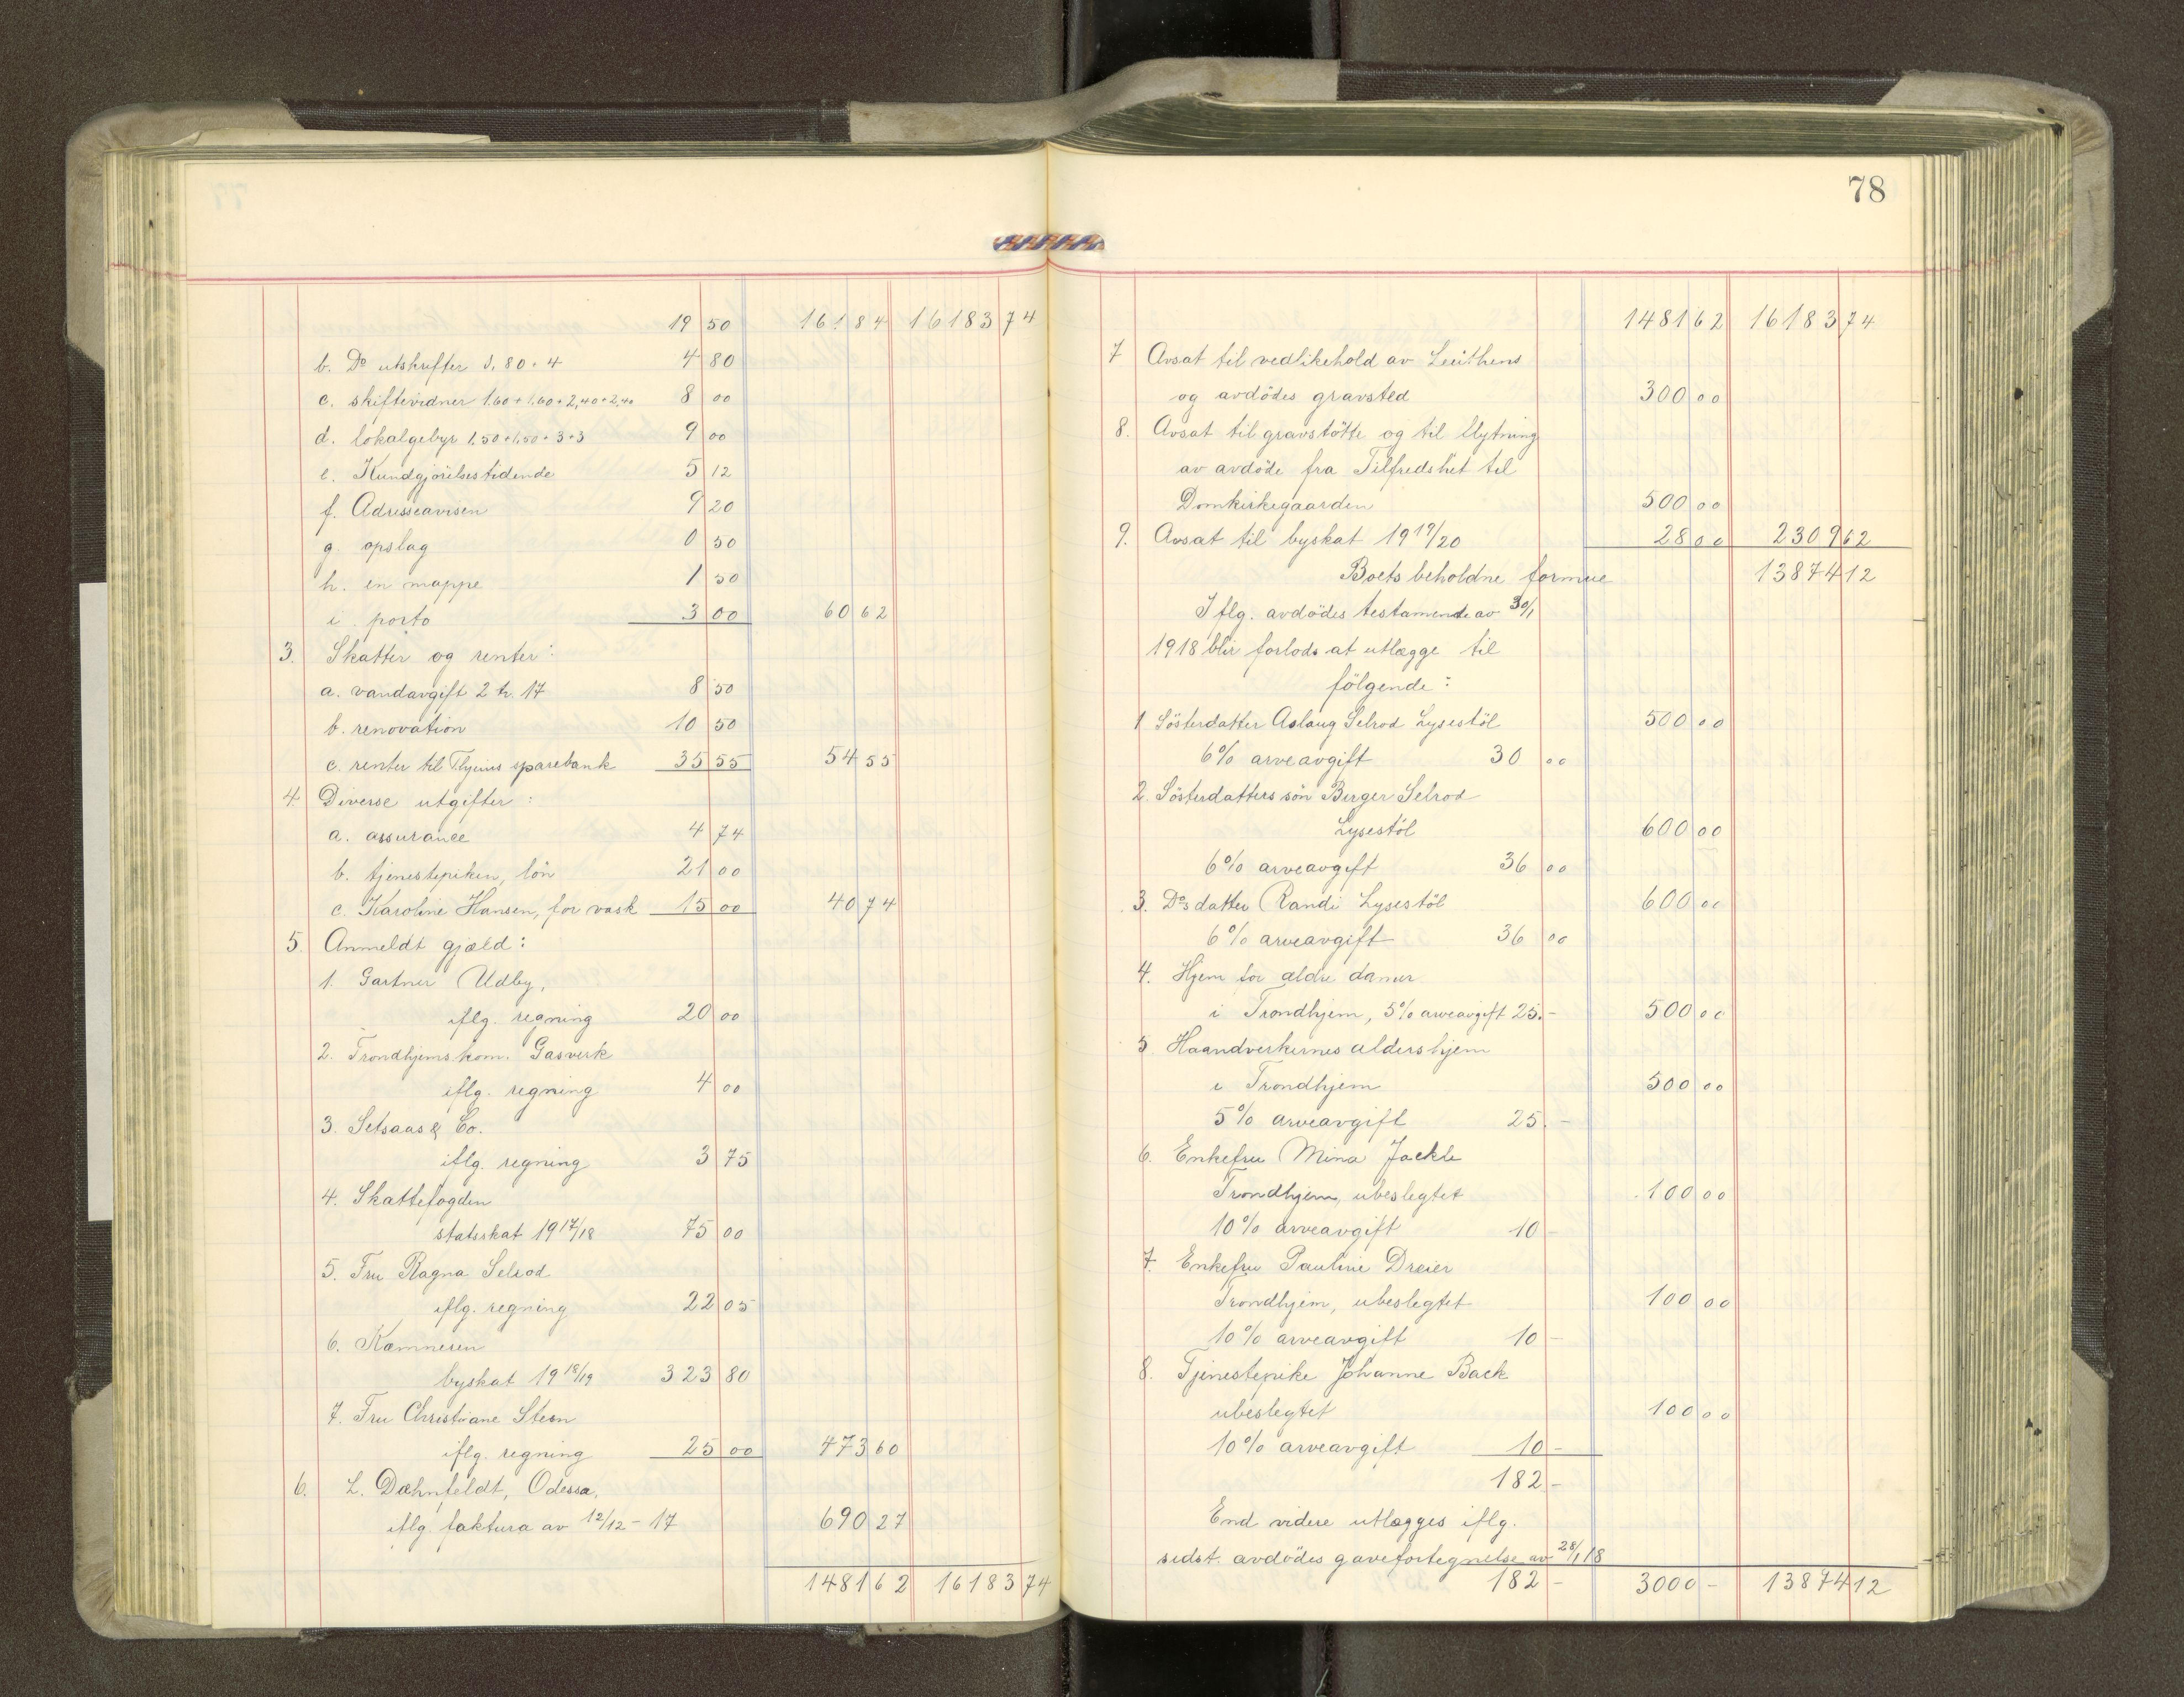 19 50 161 84 16183 74
b. Do utskrifter 0,80 + 4 4 80
c. skiftevidner 1.60 + 1.60 + 2,40 + 2,40 8 00
d. lokalgebyr 1.50 + 1.50 + 3 + 3 9 00
e. Kundgjörelsestidende 5 12
f. Adresseavisen 9 20
g. opslag 0 50
h. en mappe 1 50
i. porto 3 00 60 62
3. Skatter og renter:
a. vandavgift 2 h. 17 8 50
b. renovation 10 50
c. renter til Thjems sparebank 35 55 54 55
4 Diverse utgifter:
a. assurance 4 74
b. tjenestepiken, lön 21 00
c. Karoline Hansen, for vask 15 00 40 74
5. Anmeldt gjæld:
1. Gartner Udby,
iflg. regning 20 00
2. Trondhjems kom. Gasverk
iflg. regning 4 00
3. Setsaas & Co.
iflg. regning 3 75
4. Skattefogden
statsskat 1917/18 75 00
5. Fru Ragna Selrod
iflg. regning 22 05
6. Kæmneren
byskat 1918/19 323 80
7. Fru Christiane Steen
iflg. regning 25 00 473 60
6. L. Dæhnfeldt, Odessa,
iflg. faktura av 12/12 - 17 690 27
1481 62 16183 74
78
1481 62 16183 74
7 Avsat til vedlikehold av Leuthens
og avdödes gravsted 300 00
8. Avsat til gravstötte og til flytning
av avdöde fra Tilfredshet til
Domkirkegaarden 500 00
9. Avsat til byskat 1919/20 28 00 2309 62
Boets beholdne formue 13874 12
Iflg. avdödes testamente av 30/1
1918 blir forlods at utlægge til
fölgende:
1. Sösterdatter Aslaug Selrod Lysestöl 500 00
6% arveavgift 30 00
2. Sösterdatters sön Birger Selrod
Lysestöl 600 00
6% arveavgift 36 00
3. Dos datter Randi Lysestöl 600 00
6% arveavgift 36 00
4. Hjem for ældre damer
i Trondhjem, 5% arveavgift 25.- 500 00
5. Haandverkernes aldershjem
i Trondhjem 500 00
5% arveavgift 25.-
6. Enkefru Mina Jackle
Trondhjem, ubeslegtet 100 00
10% arveavgift 10 -
7. Enkefru Pauline Dreier
Trondhjem, ubeslegtet 100 00
10% arveavgift 10 -
8. Tjenestepike Johanne Back
ubeslegtet 100 00
10% arveavgift 10 -
182 -
End videre utlægges iflg.
sidst. avdödes gavefortegnelse av 28/1 18
182 - 3000 - 13874 12